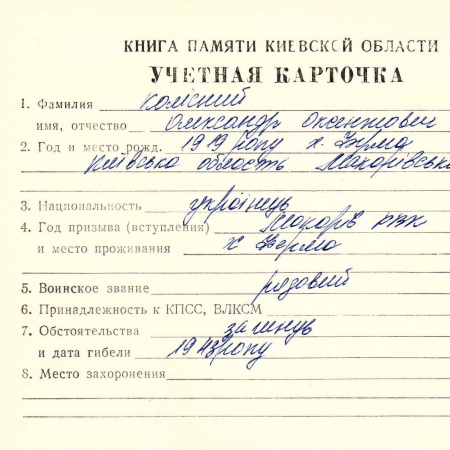 КНИГА ПАМЯТИ КИЕВСКОЙ ОБЛАСТИ
УЧЕТНАЯ КАРТОЧКА
1. Фамилия Колісний
имя, отчество Олександр Оксентович
2. Год и место рожд. 1919 року х. Ферма
Київська область Макарівськ
3. Национальность українець
4. Год призыва (вступления) Макарів РВК
и место проживания х Ферма
5. Воинское звание рядовий
6. Принадлежность к КПСС, ВЛКСМ
7. Обстоятельства загинув
и дата гибели 1943 року
8. Место захоронения